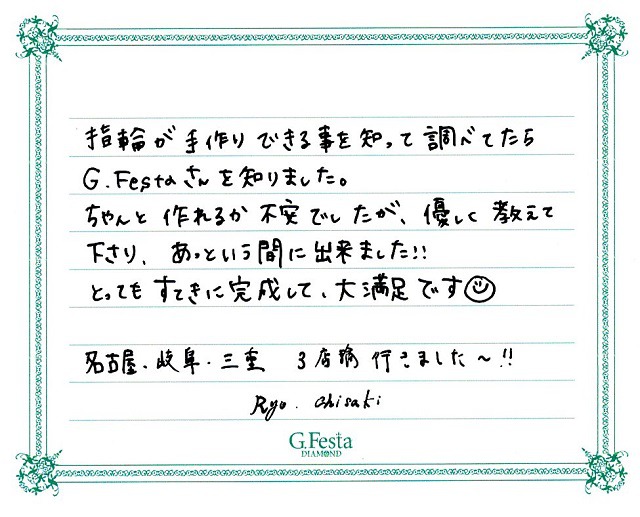 指輪が手作りできる事を知って調べてたら
G.Festaさんを知りました。
ちゃんと作れるか不安でしたが、優しく教えて
下さり、あっという間に出来ました!!
とってもすてきに完成して、大満足です
名古屋・岐阜・三重 3店舗行きました〜!!
Ryo. Chisaki
G.Festa
DIAMOND